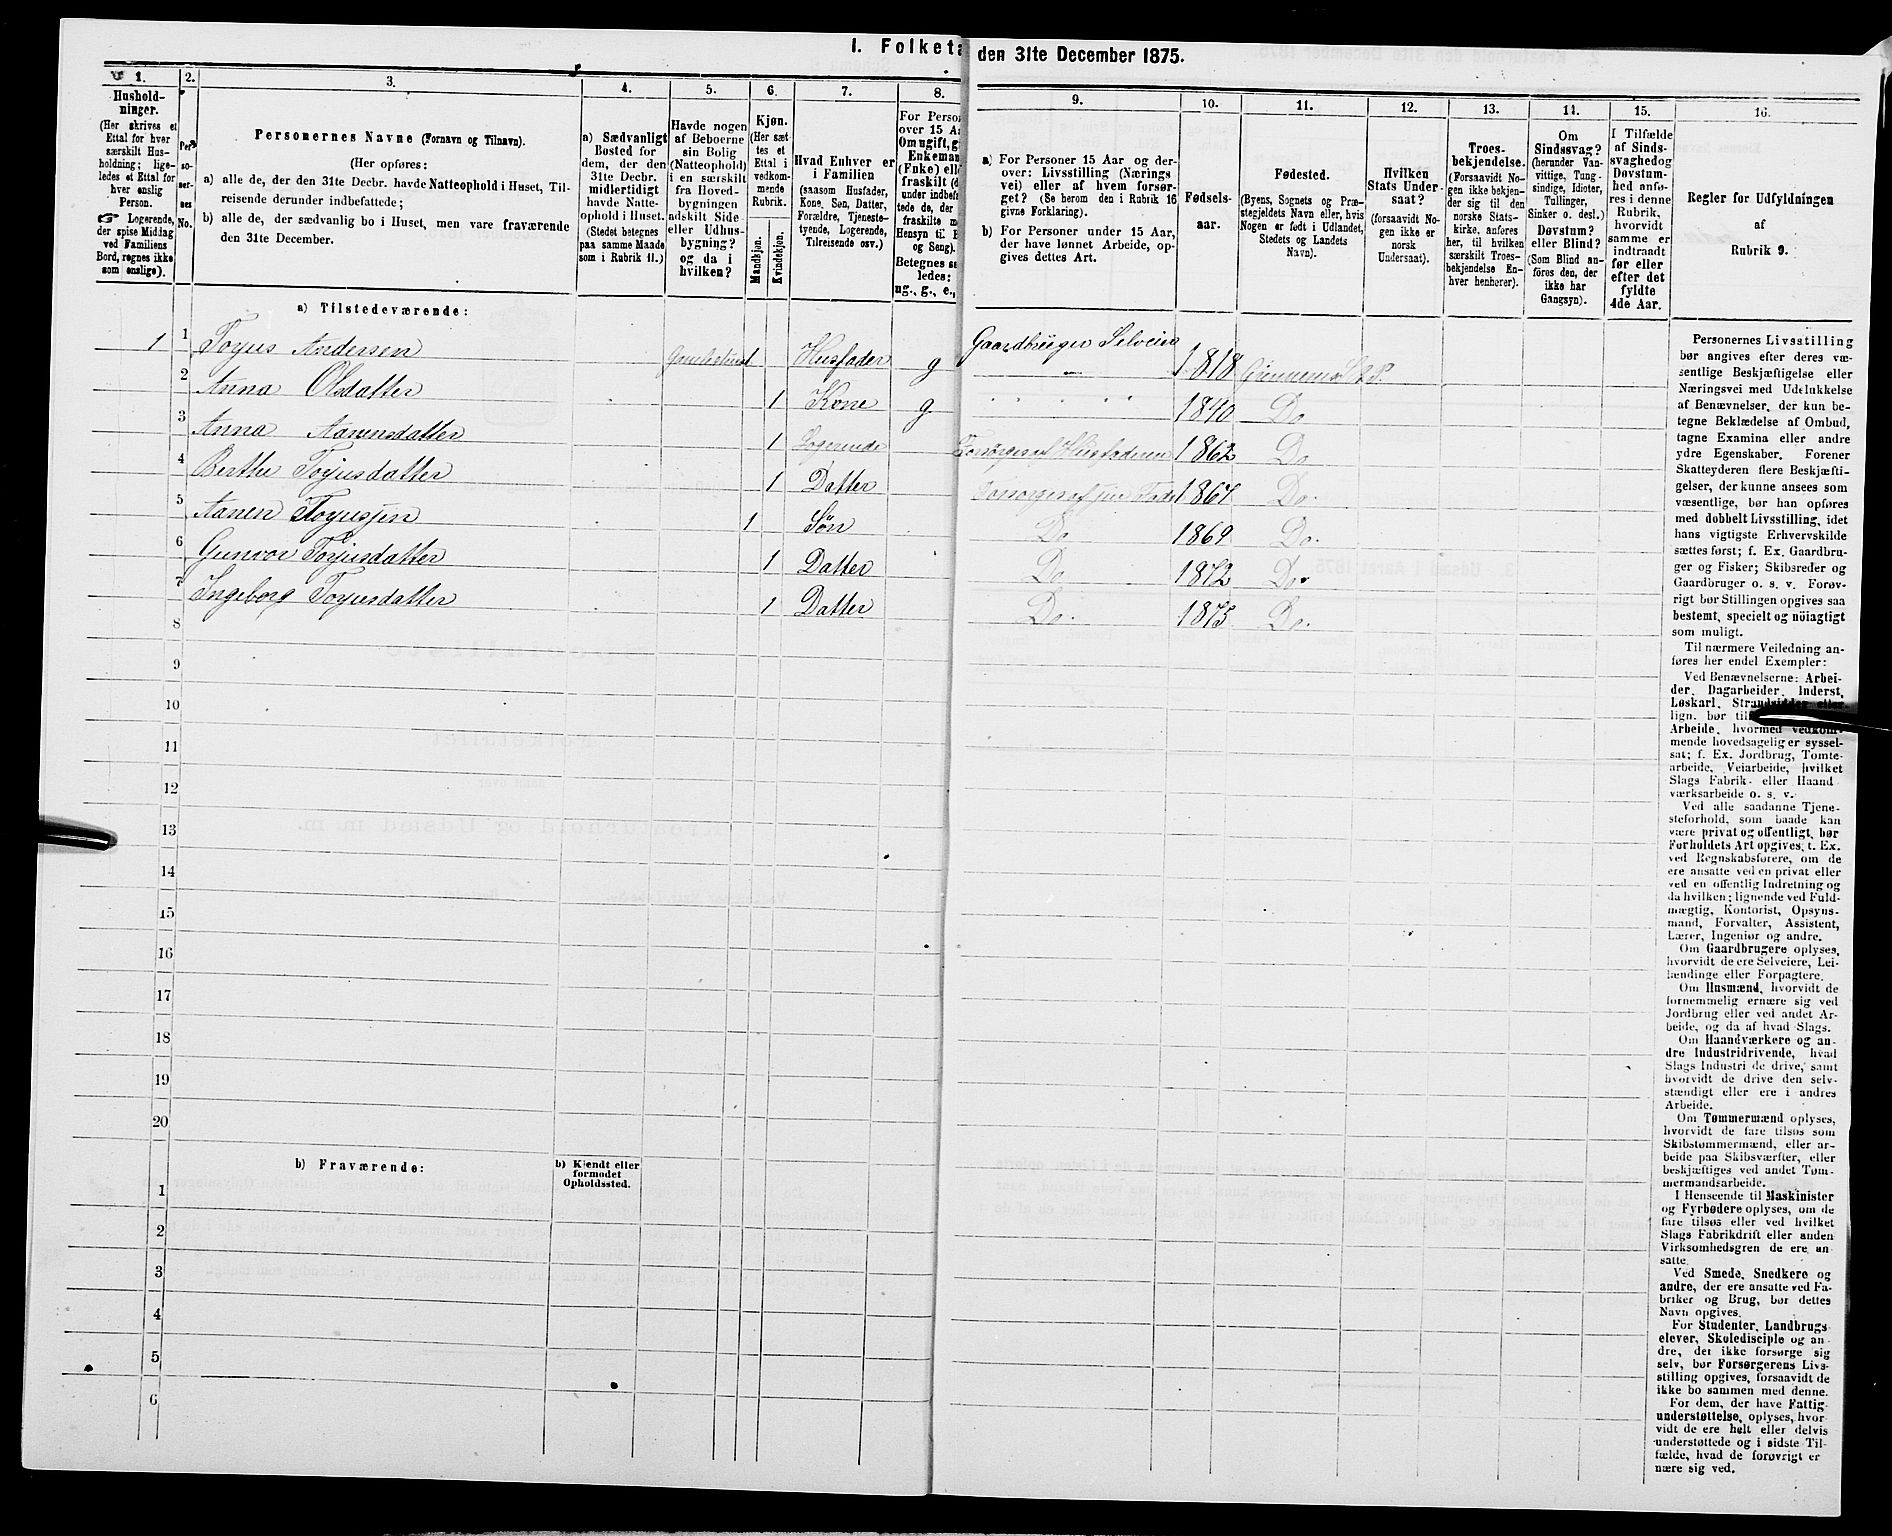 I. Folketa
den 31te December 1875.
1.
Hushold-
ninger.
(Her skrives et
Ettal for hver
særskilt Hus-
holdning; lige-
ledes et Ettal for
hver enslig
Person.
☞ Logerende,
der spise Middag
ved Familiens
Bord, regnes ikke
som enslige).
2.
Per-
so-
ner-
nes
No.
3.
Personernes Navne (Fornavn og Tilnavn).
(Her opføres:
a) alle de, der den 31te Decbr. havde Natteophold i Huset, Til-
reisende derunder indbefattede;
b) alle de, der sædvanlig bo i Huset, men vare fraværende
den 31te December.
4.
a) Sædvanligt
Bosted for
dem, der den
31te Decbr.
midlertidigt
havde Natte-
ophold i Huset.
(Stedet betegnes
paa samme Maade
som i Rubrik 11.)
5.
Havde nogen
af Beboerne
sin Bolig
(Natteophold)
i en særskilt
fra Hoved-
bygningen
adskilt Side-
eller Udhus-
bygning?
og da i
hvilken?
6.
Kjøn.
(Her sæt-
tes et
Ettal i
vedkom-
mende
Rubrik.
Mandkjøn.
Kvindekjøn.
7.
Hvad Enhver er
i Familien
(saasom Husfader,
Kone, Søn, Datter,
Forældre, Tjeneste-
tyende, Logerende,
Tilreisende osv.)
8.
For Person
over 15 Aa
Om ugift, g
Enkeman
(Enke) elle
fraskilt (d
under indbef
tede de, der
fraskilte m
Hensyn til B
og Seng).
Betegnes sa
ledes:
ug., g., e.,
9.
a) For Personer 15 Aar og der-
over: Livsstilling (Nærings
vei) eller af hvem forsør-
get? (Se herom den i Rubrik 16
givne Forklaring).
b) For Personer under 15 Aar,
der have lønnet Arbeide, op-
gives dettes Art.
10.
Fødsels-
aar.
11.
Fødested.
(Byens, Sognets og Præ-
stegjeldets Navn eller, hvis
Nogen er født i Udlandet,
Stedets og Landets
Navn).
12.
Hvilken
Stats Under-
saat?
(forsaavidt No-
gen ikke er
norsk
Undersaat).
13.
Troes-
bekjendelse.
(Forsaavidt No-
gen ikke bekjen-
der sig til den
norske Stats-
kirke, anføres
her, til hvilken
særskilt Troes-
bekjendelse En-
hver henhører).
14.
Om
Sindssvag?
(herunder Van-
vittige, Tung-
sindige, Idioter,
Tullinger,
Sinker o. desl.)
Døvstum?
eller Blind?
(Som Blind an-
føres den, der
ikke har
Gangsyn).
15.
I Tilfælde
af Sinds-
svaghed og
Døvstum-
hed anfø-
res i denne
Rubrik,
hvorvidt
samme er
indtraadt
før eller
efter det
fyldte
4de Aar.
16.
Regler for Udfyldningen
af
Rubrik 9.
a) Tilstedeværende:
1 1 Torjus Andersen 1 Husfader g Gaardbruger Selveier 1818
2 Anna Olsdatter 1 Kone g " " " " 1840 Do
3 Anna Aanensdatter 1 Logerende Forsørges af Husfaderen 1862 Do
4 Berthe Torjusdatter 1 Datter Forsørges af sin Fader 1867 Do.
5 Aanen Torjusen 1 Søn Do 1869 Do.
6 Gunvor Torjusdatter 1 Datter Do 1872 Do.
7 Ingeborg Torjusdatter 1 Datter Do. 1875 Do.
8
9
10
11
12
13
14
15
16
17
18
19
20
b) Fraværende:
b) Kjendt eller
formodet
Opholdssted.
1
2
3
4
5
6
Personernes Livsstilling
bør angives efter deres væ-
sentlige Beskjæftigelse eller
Næringsvei med Udelukkelse
af Benævnelser, der kun be-
tegne Beklædelse af Ombud,
tagne Examina eller andre
ydre Egenskaber. Forener
Skatteyderen flere Beskjæfti-
gelser, der kunne ansees som
væsentlige, bør han opføres
med dobbelt Livsstilling, idet
hans vigtigste Erhvervskilde
sættes først; f. Ex. Gaardbru-
ger og Fisker; Skibsreder og
Gaardbruger o. s. v. Forøv-
rigt bør Stillingen opgives saa
bestemt, specielt og nøiagtigt
som muligt.
Til nærmere Veiledning an-
føres her endel Exempler:
Ved Benævnelserne: Arbei-
der, Dagarbeider, Inderst,
Løskarl, Strandsidder eller
lign. bør til
Arbeide, hvormed vedkom-
mende hovedsagelig er syssel-
sat; f. Ex. Jordbrug, Tomte-
arbeide, Veiarbeide, hvilket
Slags Fabrik- eller Haand
værksarbeide o. s. v.
Ved alle saadanne Tjene-
steforhold, som baade kan
være privat og offentligt, bør
Forholdets Art opgives; f. Ex.
ved Regnskabsførere, om de
ere ansatte ved en privat eller
ved en offentlig Indretning og
da hvilken; lignende ved Fuld-
mægtig, Kontorist, Opsyns-
mand, Forvalter, Assistent,
Lærer, Ingeniør og andre.
Om Gaardbrugere oplyses,
hvorvidt de ere Selveiere, Lei-
lændinge eller Forpagtere.
Om Husmænd, hvorvidt de
fornemmelig ernære sig ved
Jordbrug eller ved andet Ar-
beide, og da af hvad Slags.
Om Haandværkere og an-
dre Industridrivende, hvad
Slags Industri de drive, samt
hvorvidt de drive den selv-
stændigt eller ere i andres
Arbeide.
Om Tømmermænd oplyses,
hvorvidt de fare tilsøs som
Skibstømmermænd, eller ar-
beide paa Skibsværfter, eller
beskjæftiges ved andet Tøm-
mermandsarbeide.
I Henseende til Maskinister
og Fyrbødere oplyses, om de
fare tilsøs eller ved hvilket
Slags Fabrikdrift eller anden
Virksomhedsgren de ere an-
satte.
Ved Smede, Snedkere og
andre, der ere ansatte ved Fa-
briker og Brug, bør dettes
Navn opgives.
For Studenter, Landbrugs
elever, Skoledisciple og an-
dre, der ikke forsørge sig
selv, bør Forsørgerens Livs-
stilling opgives, forsaavidt de
ikke bo sammen med denne.
For dem, der have Fattig-
understøttelse, oplyses, hvor-
vidt de ere helt eller delvis
understøttede og i sidste Til-
fælde, hvad de forøvrigt er
nære sig ved.